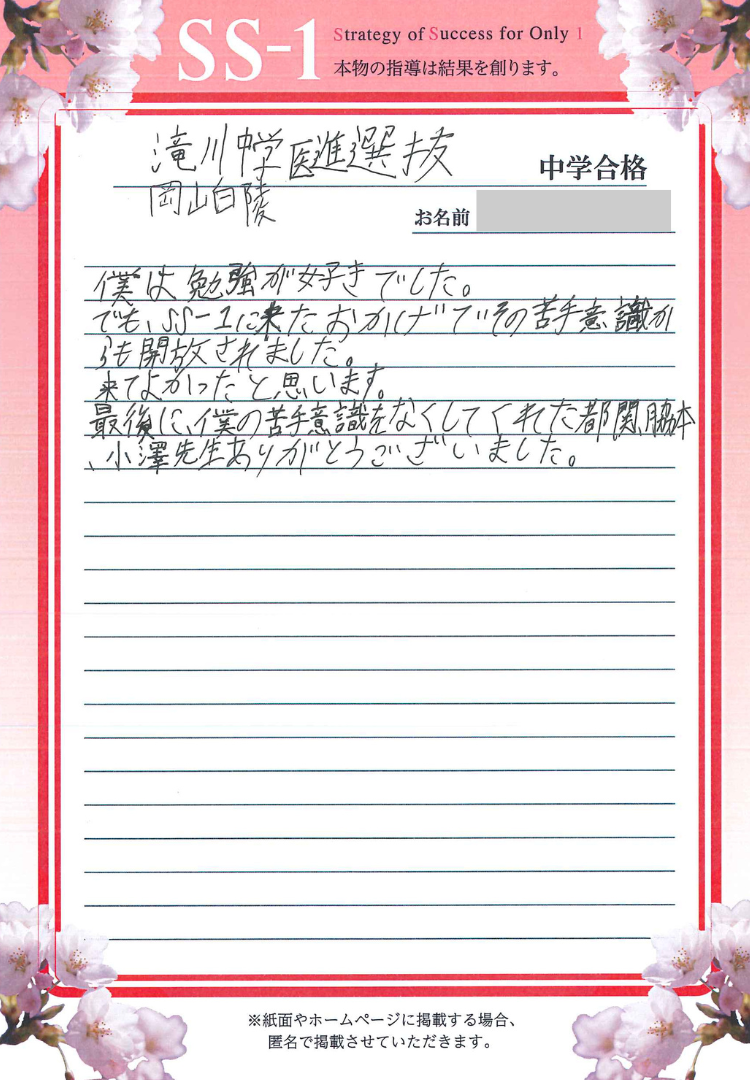 SS-1
Strategy of Success for Only 1
本物の指導は結果を創ります。
滝川中学医進選抜
岡山白陵
中学合格
お名前
僕は勉強が好きでした。
でも、SS-1に来たおかげでその苦手意識か
らも開放されました。
来てよかったと思います。
最後に、僕の苦手意識をなくしてくれた都関、脇本
、小澤先生ありがとうございました。
※紙面やホームページに掲載する場合、
匿名で掲載させていただきます。